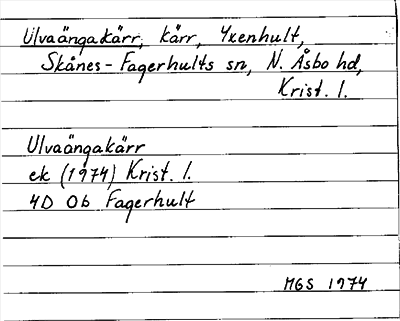 Ulvaängakärr, kärr, Yxenhult,
Skånes-Fagerhults sn, N. Åsbo hd,
Krist. l.
Ulvaängakärr
ek (1974) Krist. l.
4D 0b Fagerhult
MGS 1974